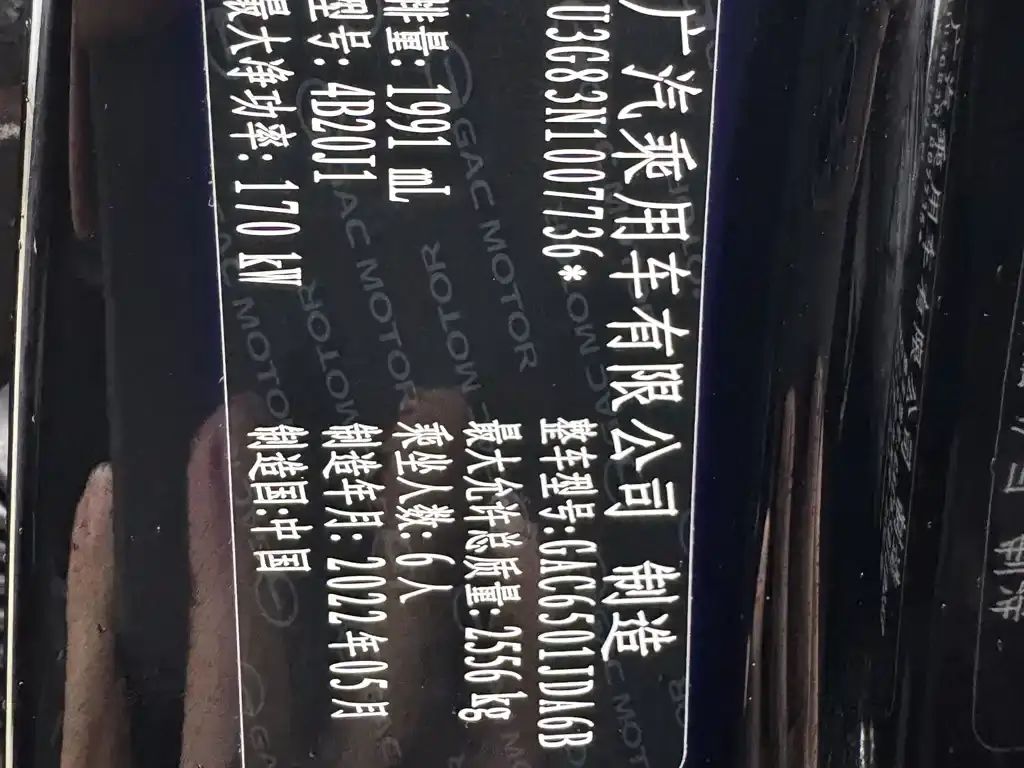 广汽乘用车有限公司 制造
U3G83N1007736* 整车型号:GAC6501JDA6B
最大允许总质量:2556 kg
排量: 1991 mL 乘坐人数: 6 人
型号: 4B20J1 制造年月: 2022年05月
最大净功率: 170 kW 制造国:中国
GAC MOTOR